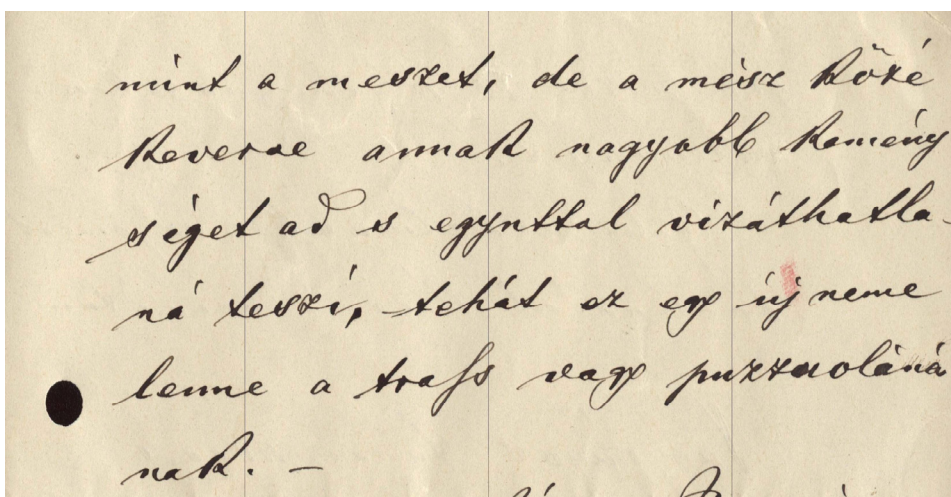 mint a meszet, de a mész közé
keverve annak nagyobb kemény
séget ad s egyuttal vizáthatla-
ná teszi, tehát ez egy új neme
lenne a trass vagy puzzuoláná
nak. –